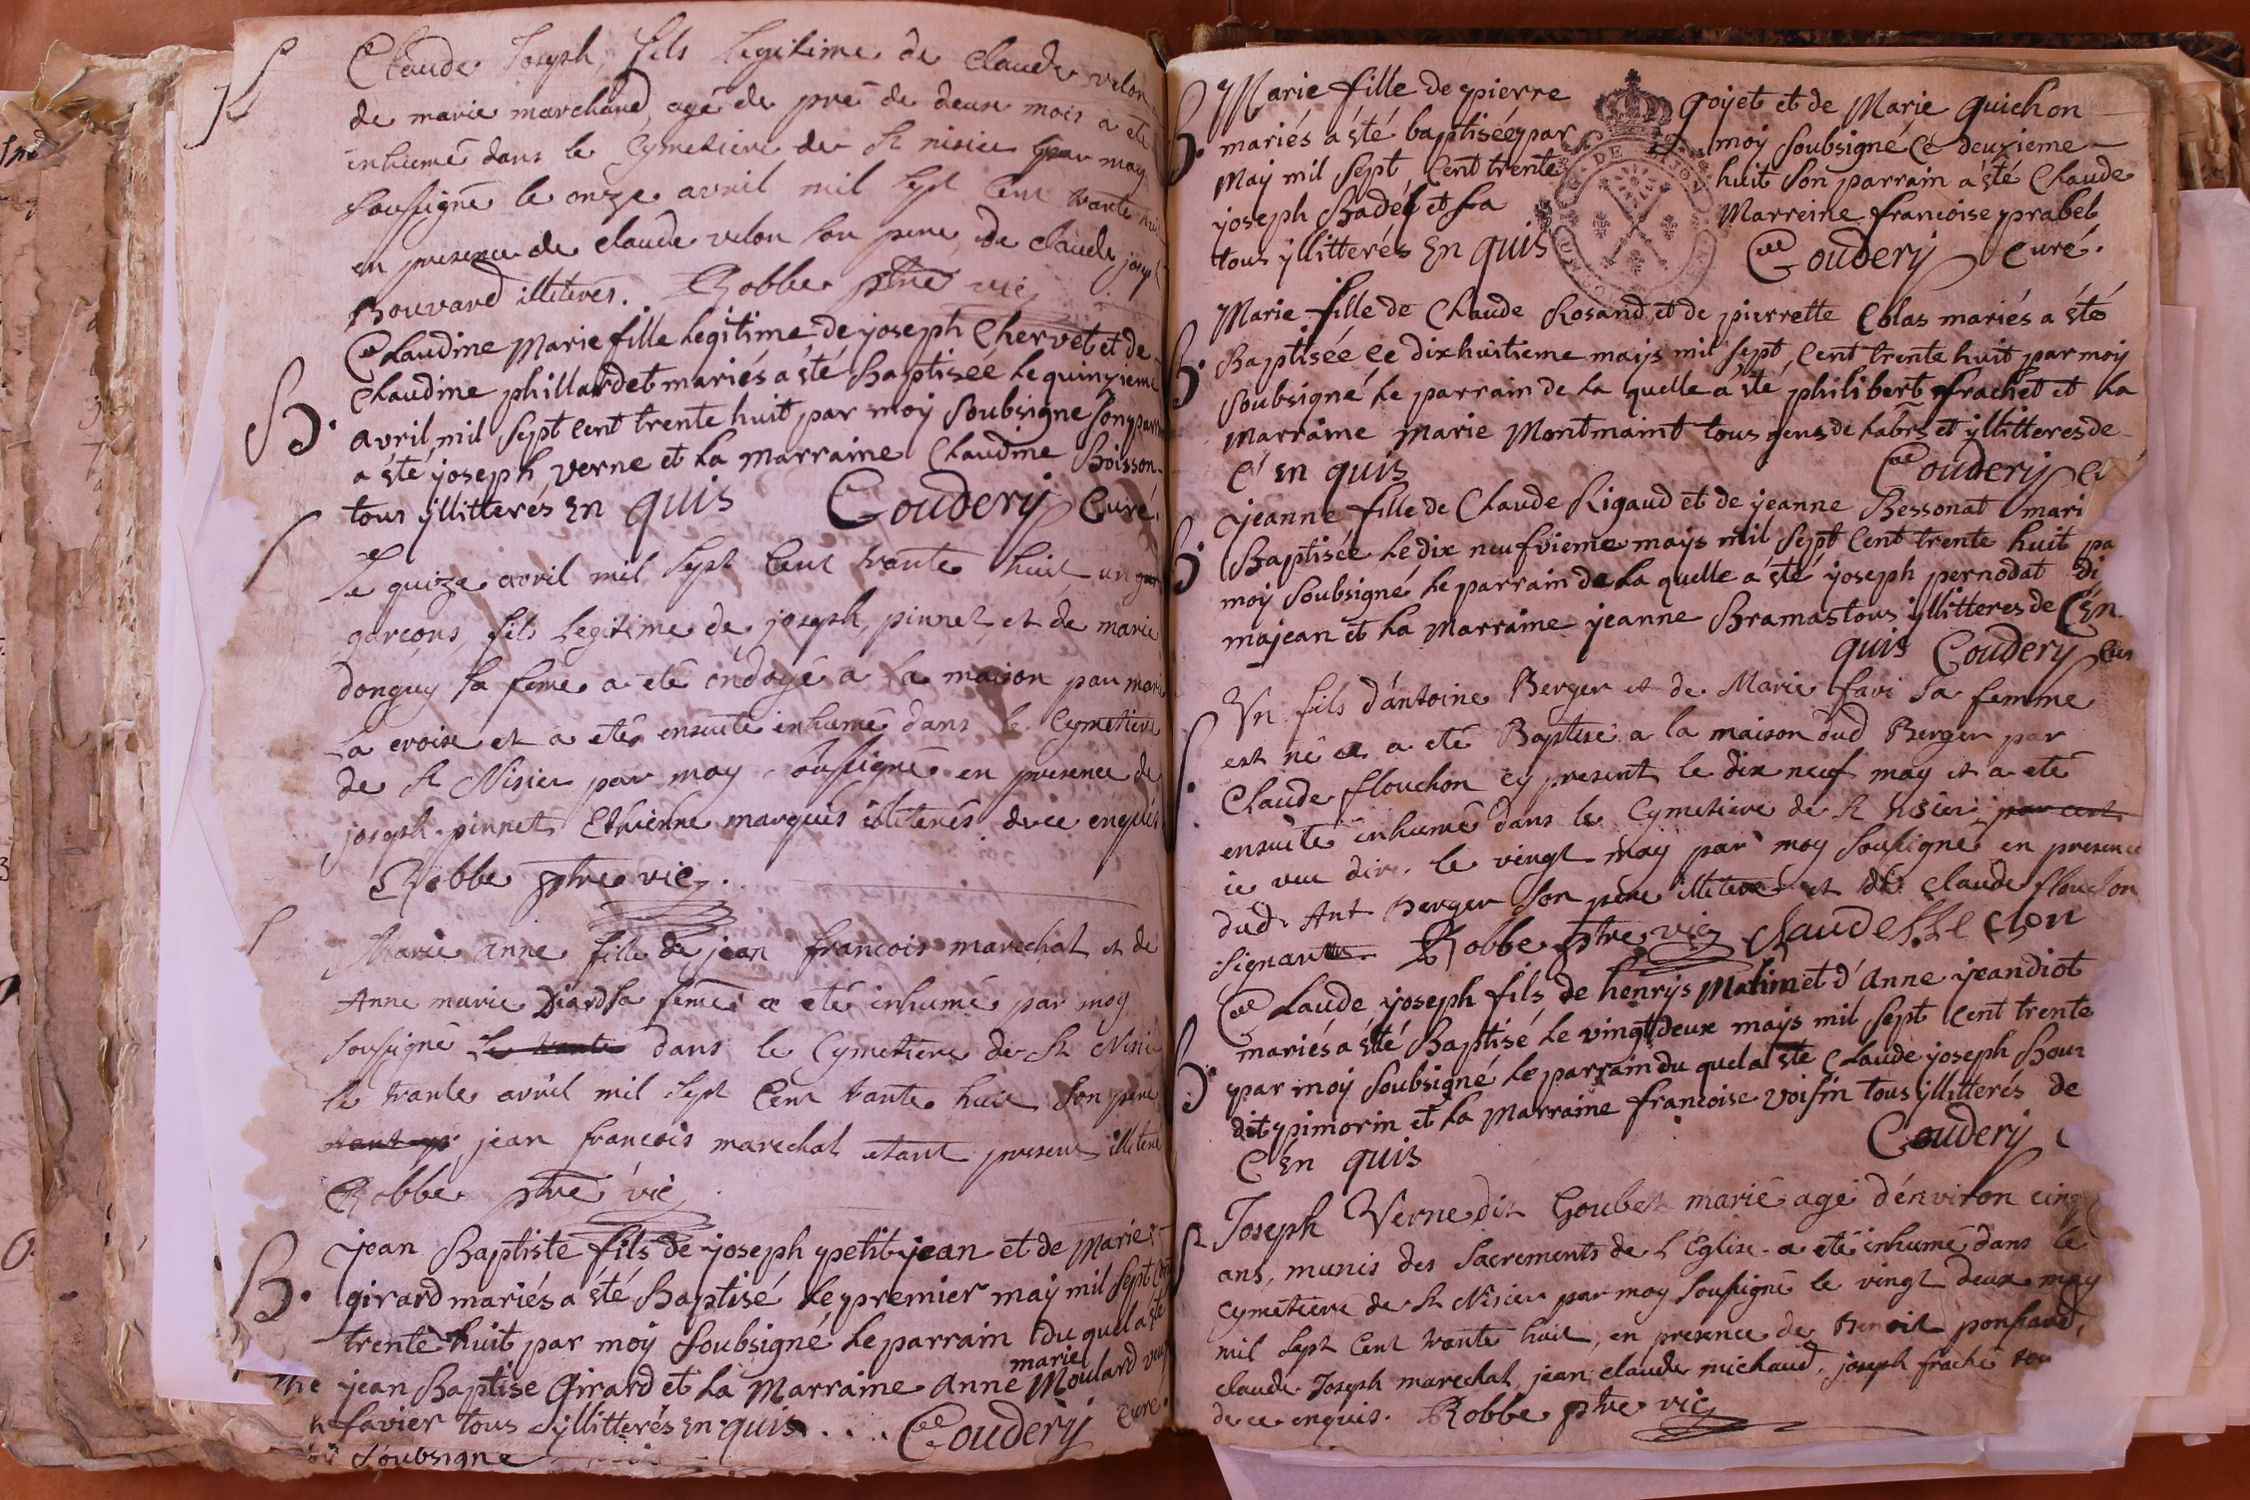 Claude Joseph, fils legitime de Claude velon
de marie marchand, agé de pré de deux mois a eté
inhumé dans le Cymetiere de St nisier par moy
sousigné le onze avril mil sept cent trante
en presence de claude velon son pere, de claude joseph
Bouvard illiteres. Robbe ptre vic
Claudine Marie fille legitime de joseph Chervet et de
B. claudine phillardet mariés a été Baptisée le quinzieme
avril mil sept cent trente huit par moy soubsigne son
a été joseph verne et la marraine Claudine Boisson
tous yllitterés en quis Coudery Curé.
Le quize avril mil sept cent trante huit un
garçons, fils legitime de joseph pinnet, et de marie
donguy sa feme a eté ondoyé a la maison par
la croix et a eté ensuite inhumé dans le Cymetiere
de St Nisier par moy sousigné en presence de
joseph pinnet, Ethienne marquis illiterés de ce enquis
Robbe ptre vic.
Marie anne fille de jean francois marechal et de
Anne marie Diard sa feme a eté inhumé par moy
sousigné le trante dans le Cymetiere de St Nisie
le trante avril mil sept cent trante huit son pere
jean francois marechal etant present illitere
Robbe ptre vic
jean Baptiste fils de joseph petitjean et de Marie
B. girard mariés a été Baptisé le premier may mil sept
trente huit par moy soubsigné le parrain du quel a été
jean Baptise Girard et la Marraine Anne marie Moulard
favier tous yllitterés en quis.... Coudery Curé.
soubsigne
Marie fille de pierre Goyet et de Marie Guichon
B. mariés a été baptisée par moy soubsigné ce deuxieme
May mil sept cent trente huit son parrain a été Claude
joseph Badel et la Marreine francoise prabel
tous yllitterés en quis Coudery curé.
Marie fille de Claude Rosand et de pierrette Colas mariés a été
B. Baptisée ce dixhuitieme mays mil sept cent trente huit par moy
soubsigné le parrain de la quelle a été philibert frachet et la
Marraine Marie Montmaint tous gens de labrs et yllitteres de
C'en quis Coudery
jeanne fille de Claude Rigaud et de jeanne Bessonat mari
B. Baptisée le dix neufvieme mays mil sept cent trente huit pa
moy soubsigné le parrain de la quelle a été joseph pernodat di
majean et la Marraine jeanne Bramas tous yllitteres de C'en
quis Coudery cur
Un fils d'antoine Berger et de Marie favi sa femme
est né et a eté Baptisé a la maison dud Berger par
Claude flouchon cy present le dix neuf may et a eté
ensuite inhumé dans le Cymetiere de St nisier par cest
ie veu dire le vingt may par moy sousigné en presence
dud Ant Berger son pere illiteré et de claude flouchon
signant Robbe ptre vic
Claude joseph fils de henrys Mathin et d'Anne jeandiot
mariés a été Baptisé le vingt deux mays mil sept cent trente
B. par moy soubsigné le parrain du quel a été Claude joseph
dit pimorin et la Marraine francoise voisin tous yllitterés de
C'en quis Coudery
Joseph Verne dit Goubet marié agé d'environ cinq
ans, munis des Sacrements de l'Eglise a eté inhumé dans le
Cymetiere de St Nisier par moy sousigné le vingt deux may
mil sept cent trante huit, en presence de Benoit
claude Joseph marechal, jean claude michaud, joseph fraché
de ce enquis. Robbe ptre vic